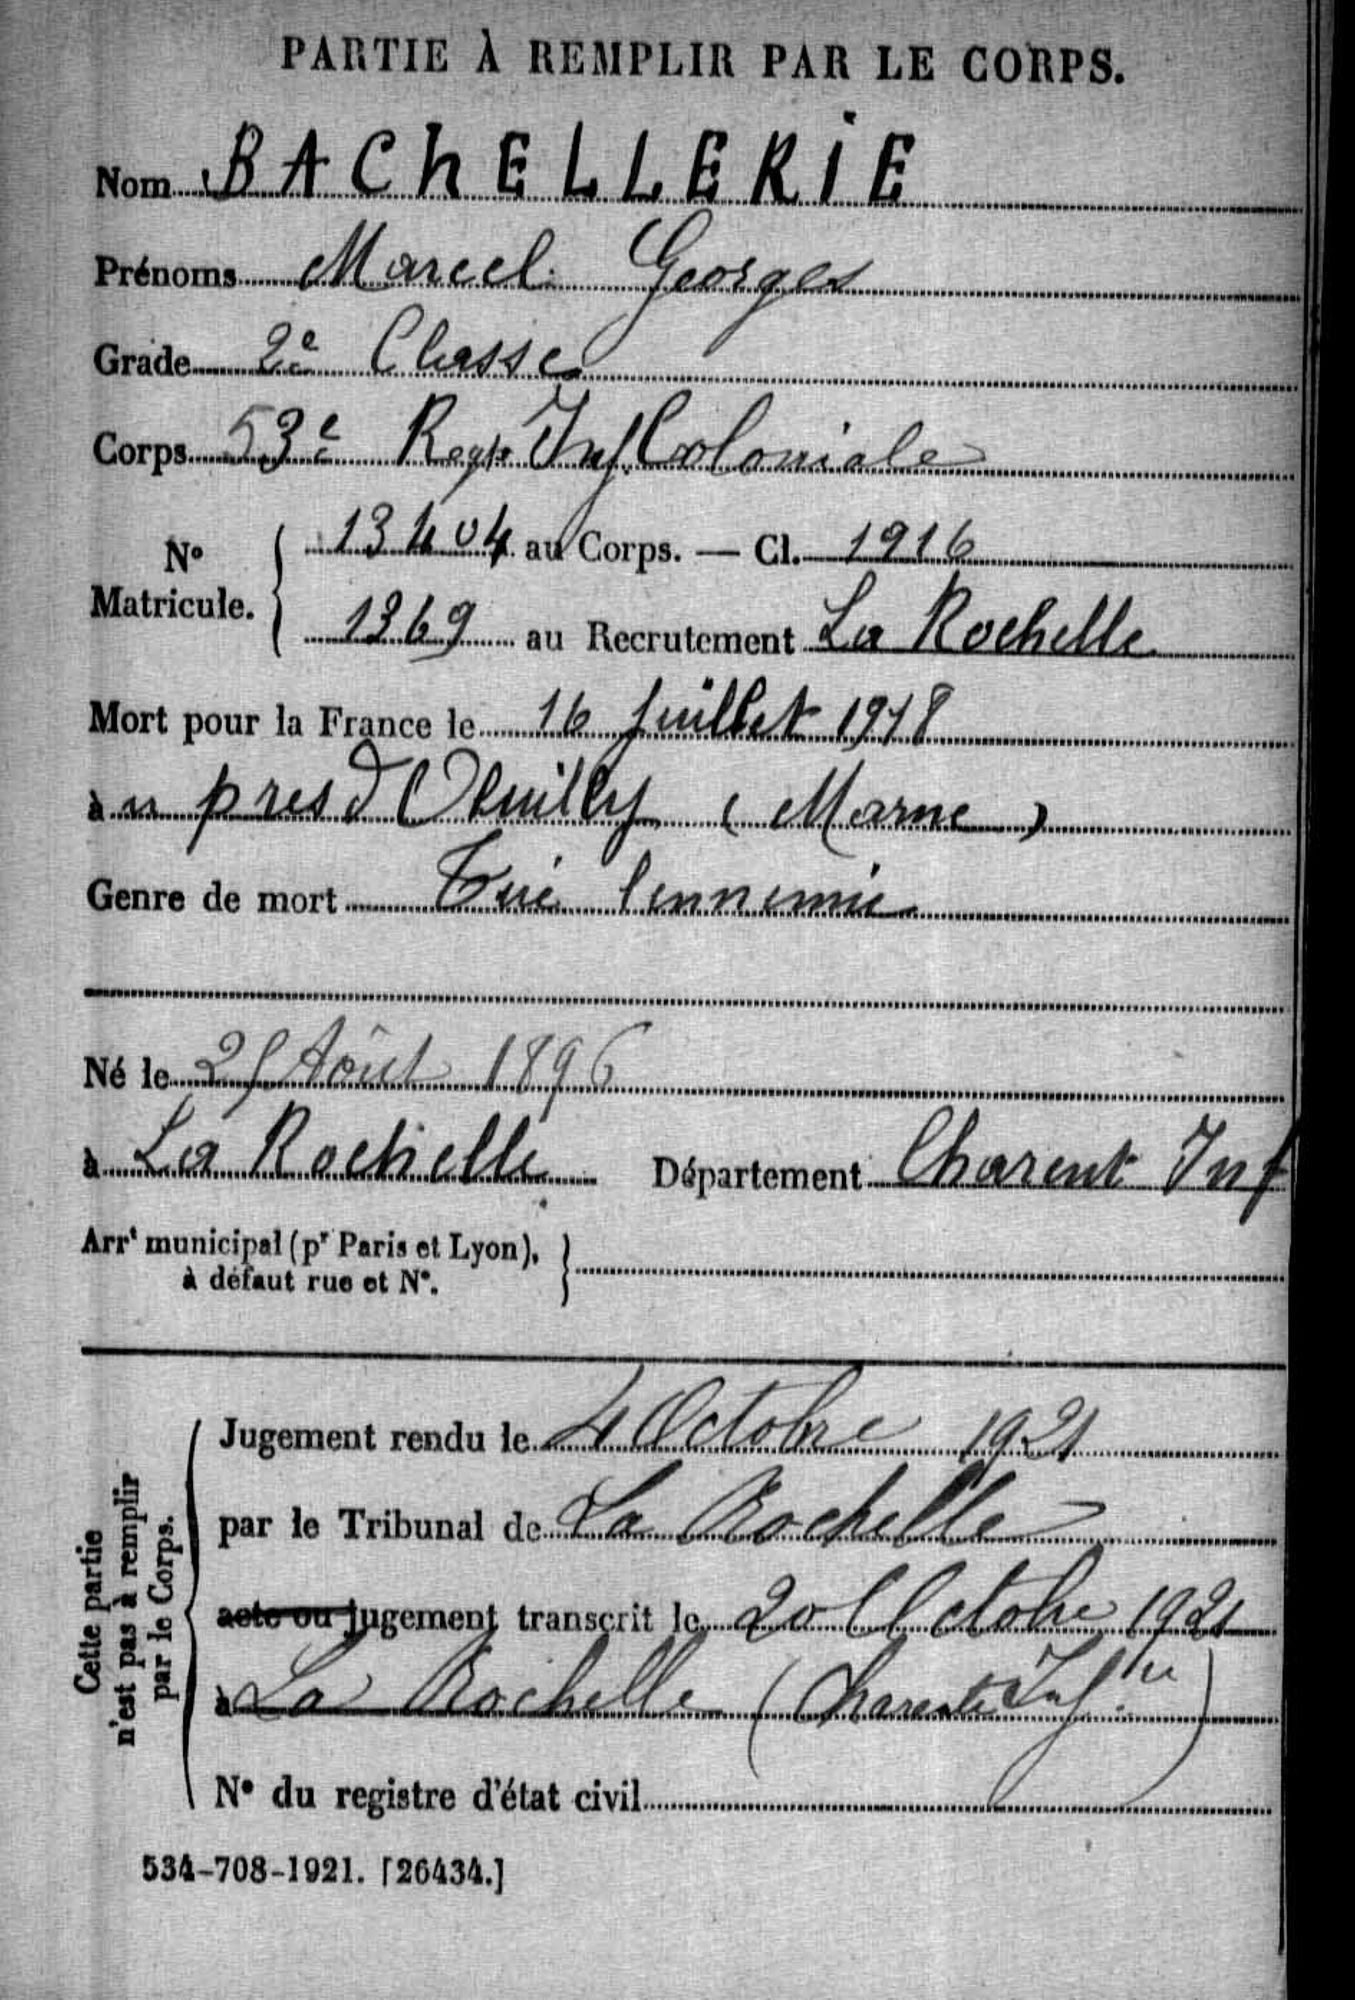 PARTIE À REMPLIR PAR LE CORPS.
Nom BACHELLERIE
Prénoms Marcel Georges
Grade 2e Classe
Corps 53e Regt Inf Coloniale
N° Matricule. { 13404 au Corps. — Cl. 1916
1369 au Recrutement La Rochelle
Mort pour la France le 16 Juillet 1918
à pres d'Oeuilly (Marne)
Genre de mort Tué lennemie
Né le 25 Août 1896
à La Rochelle Département Charent Inf
Arrt municipal (pr Paris et Lyon),
à défaut rue et N°.
Cette partie
n'est pas à remplir
par le Corps.
Jugement rendu le 4 Octobre 1921
par le Tribunal de La Rochelle
acte ou jugement transcrit le 20 Octobre 1921
à La Rochelle (Charente Infre)
N° du registre d'état civil
534-708-1921. [26434.]